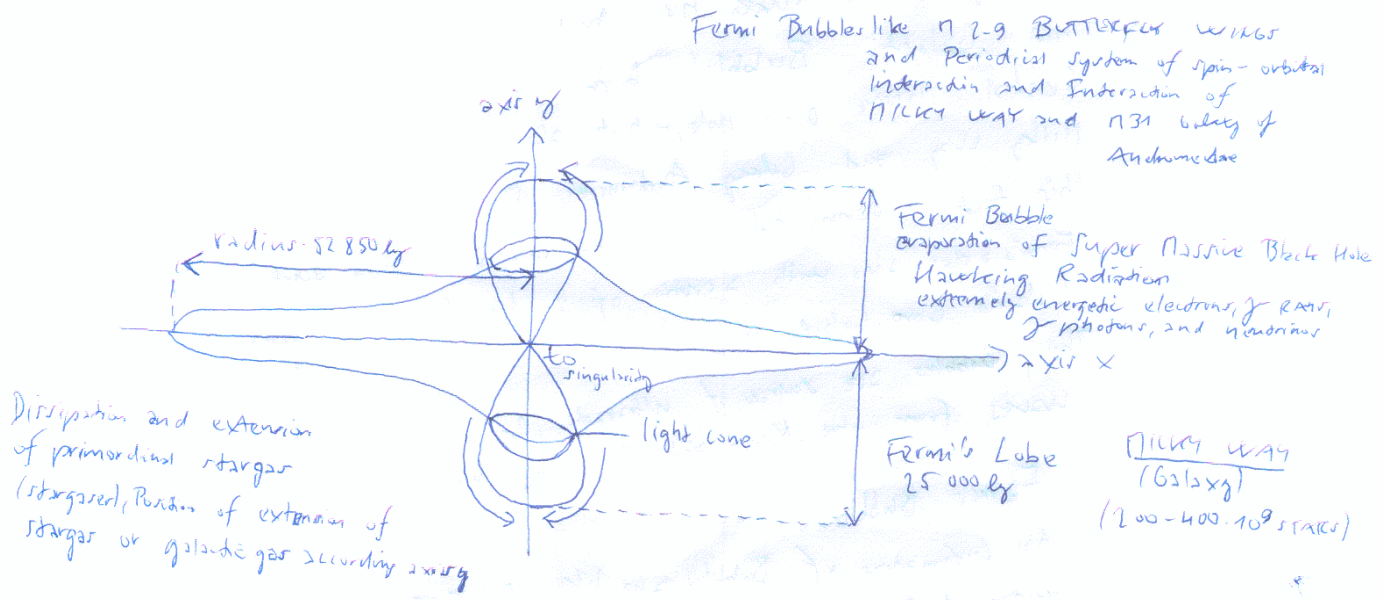 Fermi Bubbles like M 2-9 BUTTERFLY WINGS
and Periodical system of spin-orbital
interaction and Interaction of
MILKY WAY and M31 Galaxy of
Andromedae
axis y
radius 52 850 ly
Fermi Bubble
evaporation of Super Massive Black Hole
Hawking Radiation
extremely energetic electrons, γ RAYS,
γ photons, and neutrinos
axis x
to
singularity
light cone
Dissipation and extension
of primordial stargas
(stargaser), Position of extension of
stargas or galactic gas according axis y
Fermi's Lobe
25 000 ly
MILKY WAY
(Galaxy)
(200-400·10⁹ STARS)